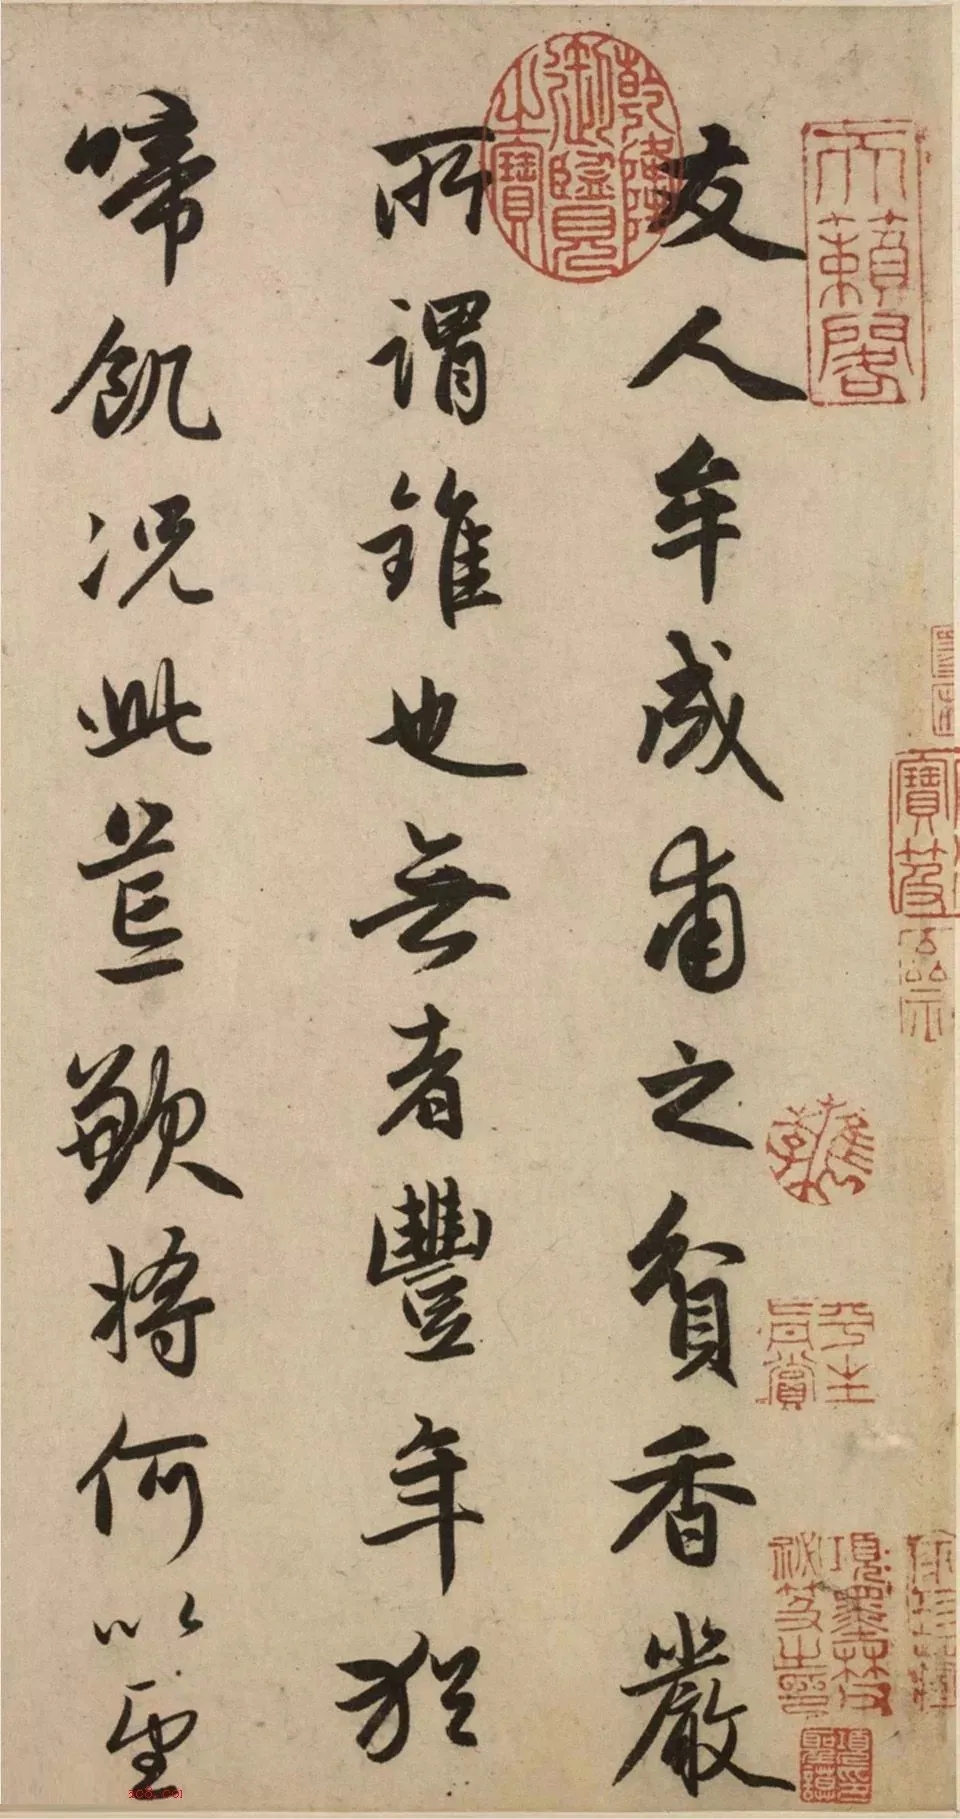 友人牟成甫之貧香嚴
所謂錐也無者豐年猶
啼飢況此荒歉將何以望
乾隆御覽之寶
天籟閣
平生真賞
項墨林秘笈之印